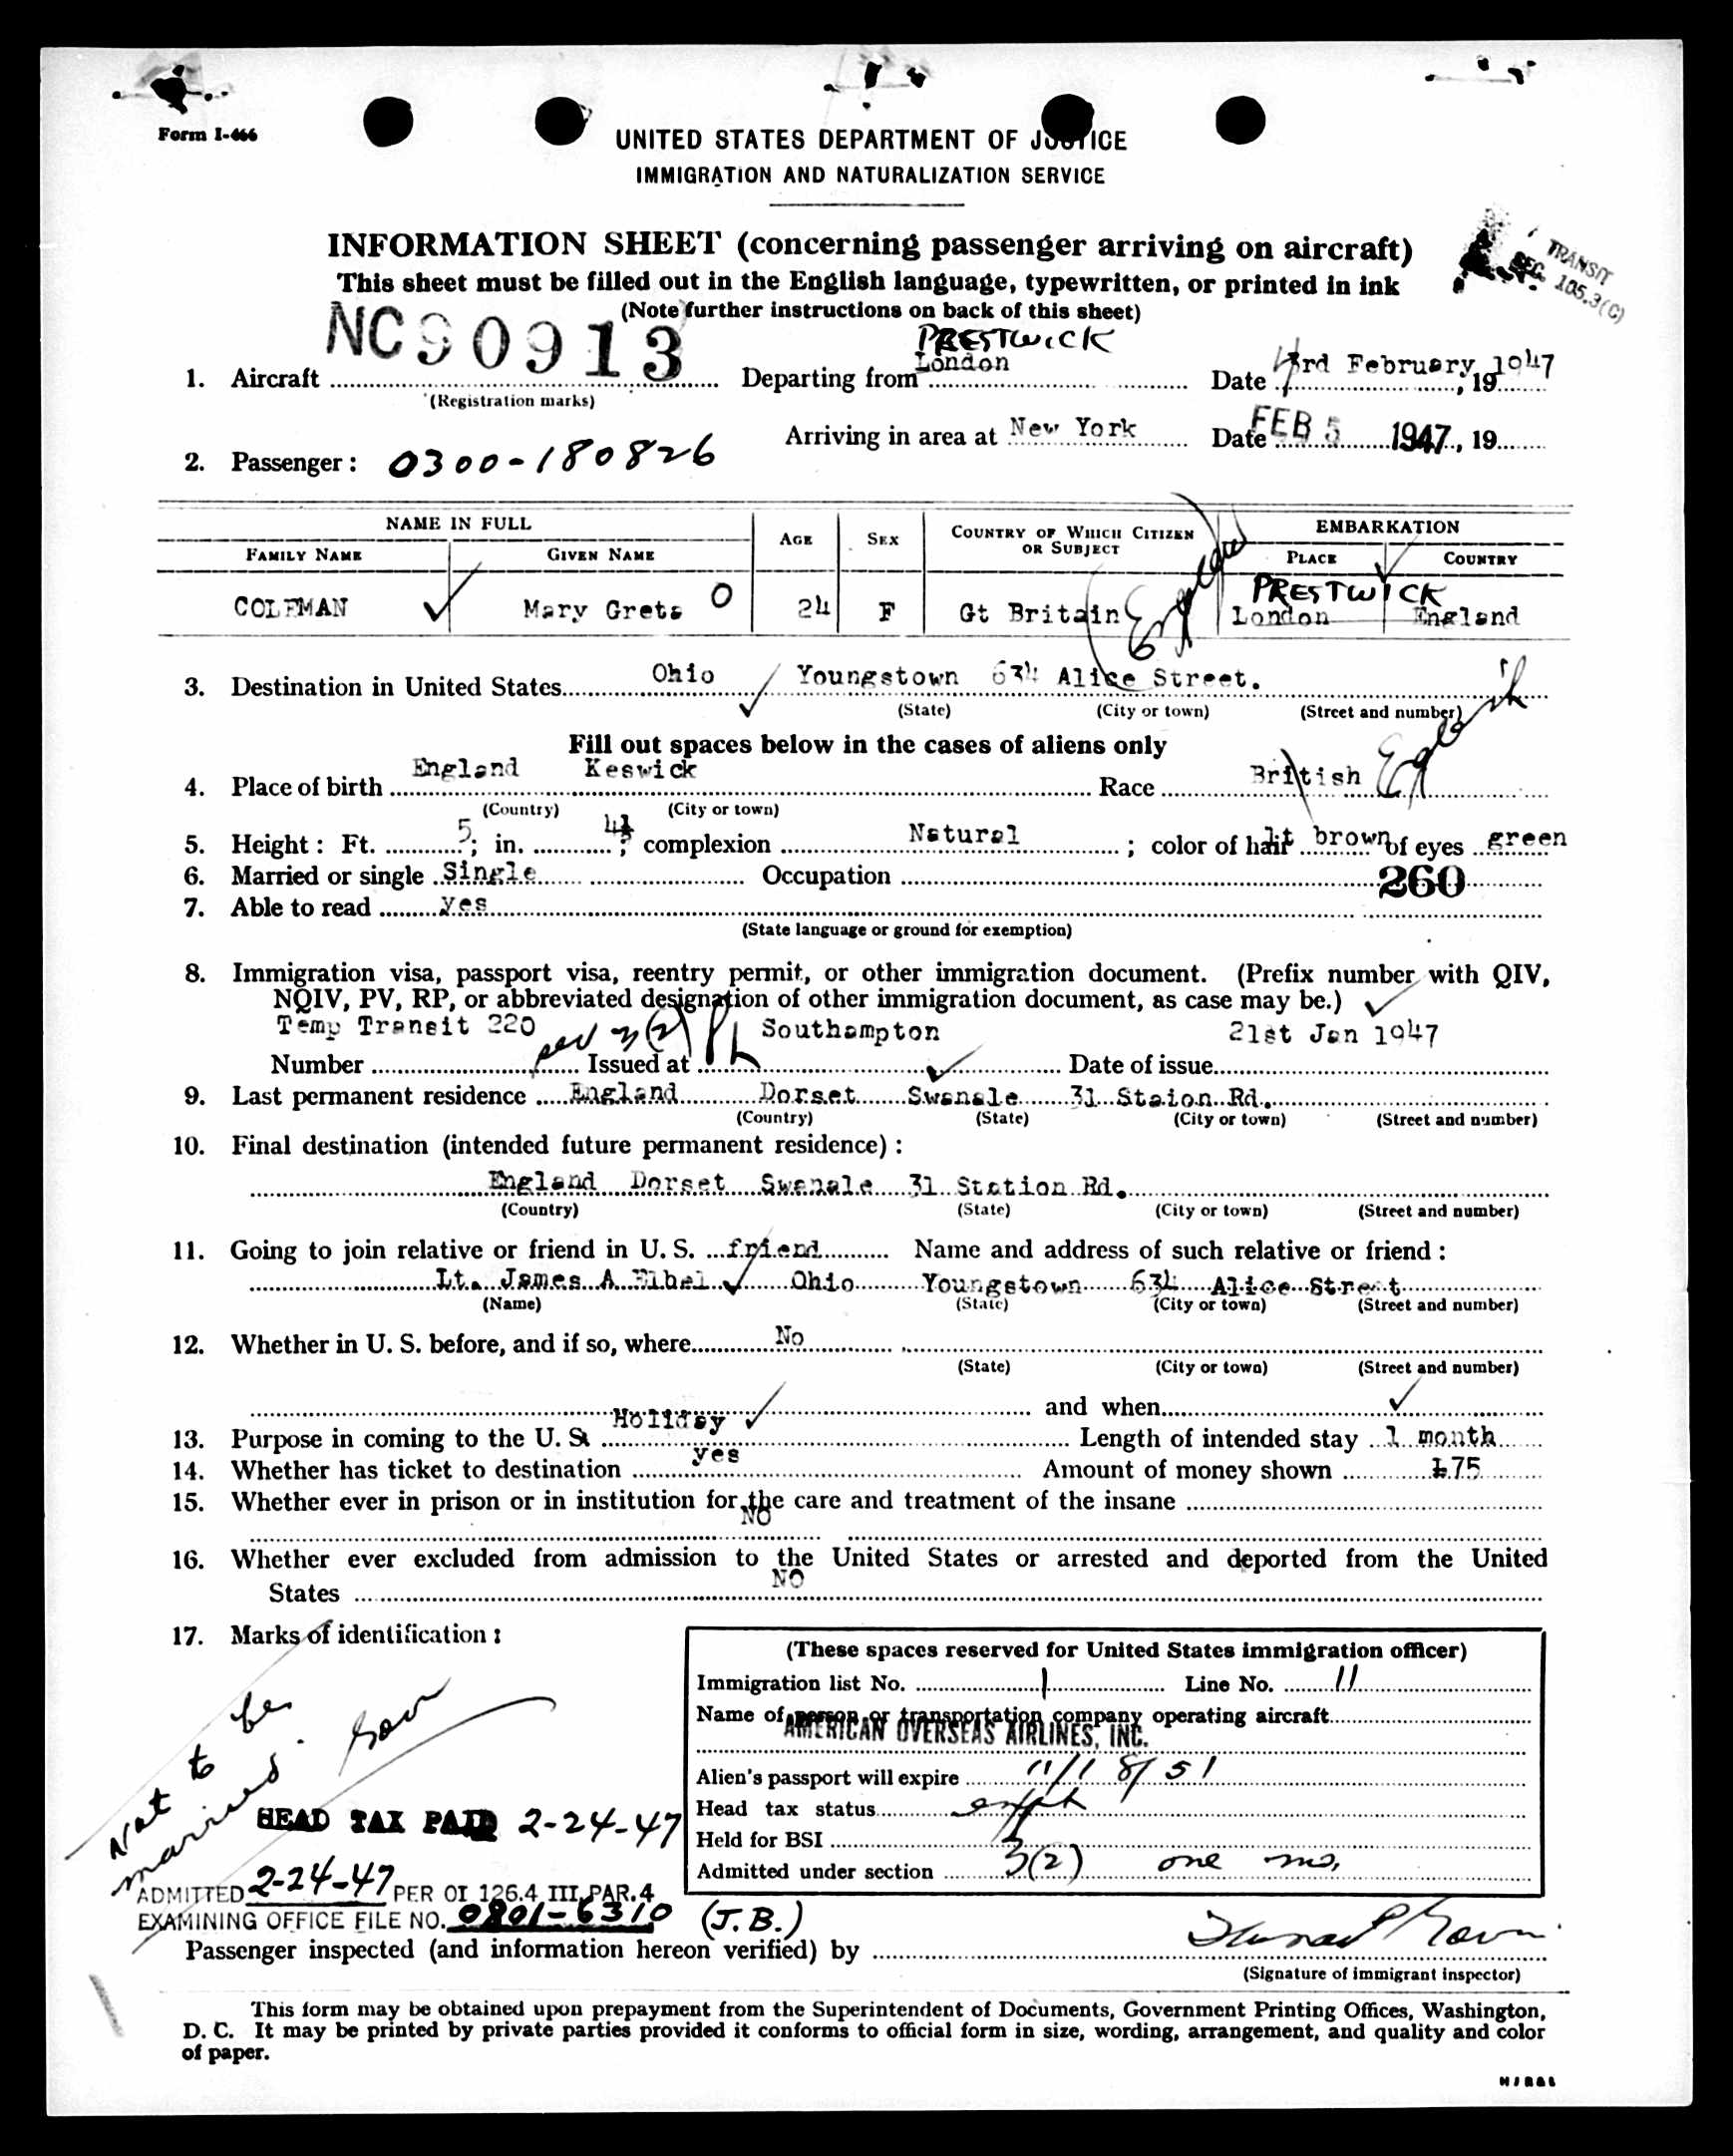 Form I-466
UNITED STATES DEPARTMENT OF JUSTICE
IMMIGRATION AND NATURALIZATION SERVICE
INFORMATION SHEET (concerning passenger arriving on aircraft)
This sheet must be filled out in the English language, typewritten, or printed in ink
(Note further instructions on back of this sheet)
TRANSIT
SEC. 105.3(C)
PRESTWICK
1. Aircraft NC90913 Departing from London Date 3rd February, 1947, 19
(Registration marks)
Arriving in area at New York Date FEB 5 1947, 19
2. Passenger: 0300-180826
NAME IN FULL AGE SEX COUNTRY OF WHICH CITIZEN OR SUBJECT EMBARKATION
FAMILY NAME GIVEN NAME PLACE COUNTRY
PRESTWICK
COLEMAN Mary Greta O 24 F Gt Britain England London England
3. Destination in United States Ohio Youngstown 634 Alice Street.
(State) (City or town) (Street and number)
Fill out spaces below in the cases of aliens only
4. Place of birth England Keswick Race British English
(Country) (City or town)
5. Height: Ft. 5; in. 4½; complexion Natural; color of hair lt brown of eyes green
6. Married or single Single Occupation 260
7. Able to read yes
(State language or ground for exemption)
8. Immigration visa, passport visa, reentry permit, or other immigration document. (Prefix number with QIV,
NQIV, PV, RP, or abbreviated designation of other immigration document, as case may be.)
Temp Transit 220 3(2) Southampton 21st Jan 1947
Number Issued at Date of issue
9. Last permanent residence England Dorset Swanale 31 Staion Rd.
(Country) (State) (City or town) (Street and number)
10. Final destination (intended future permanent residence):
England Dorset Swanale 31 Station Rd.
(Country) (State) (City or town) (Street and number)
11. Going to join relative or friend in U. S. friend Name and address of such relative or friend:
Lt. James A Elbel Ohio Youngstown 634 Alice Street
(Name) (State) (City or town) (Street and number)
12. Whether in U. S. before, and if so, where No
(State) (City or town) (Street and number)
and when
13. Purpose in coming to the U. S. Holiday Length of intended stay 1 month
14. Whether has ticket to destination yes Amount of money shown £75
15. Whether ever in prison or in institution for the care and treatment of the insane
NO
16. Whether ever excluded from admission to the United States or arrested and deported from the United
States NO
17. Marks of identification:
Not to be
married.
HEAD TAX PAID 2-24-47
ADMITTED 2-24-47 PER OI 126.4 III PAR. 4
EXAMINING OFFICE FILE NO. 0801-6310 (J.B.)
(These spaces reserved for United States immigration officer)
Immigration list No. 1 Line No. 11
Name of person or transportation company operating aircraft
AMERICAN OVERSEAS AIRLINES, INC.
Alien's passport will expire 11/18/51
Head tax status
Held for BSI
Admitted under section 3(2) one mo.
Passenger inspected (and information hereon verified) by
(Signature of immigrant inspector)
This form may be obtained upon prepayment from the Superintendent of Documents, Government Printing Offices, Washington,
D. C. It may be printed by private parties provided it conforms to official form in size, wording, arrangement, and quality and color
of paper.